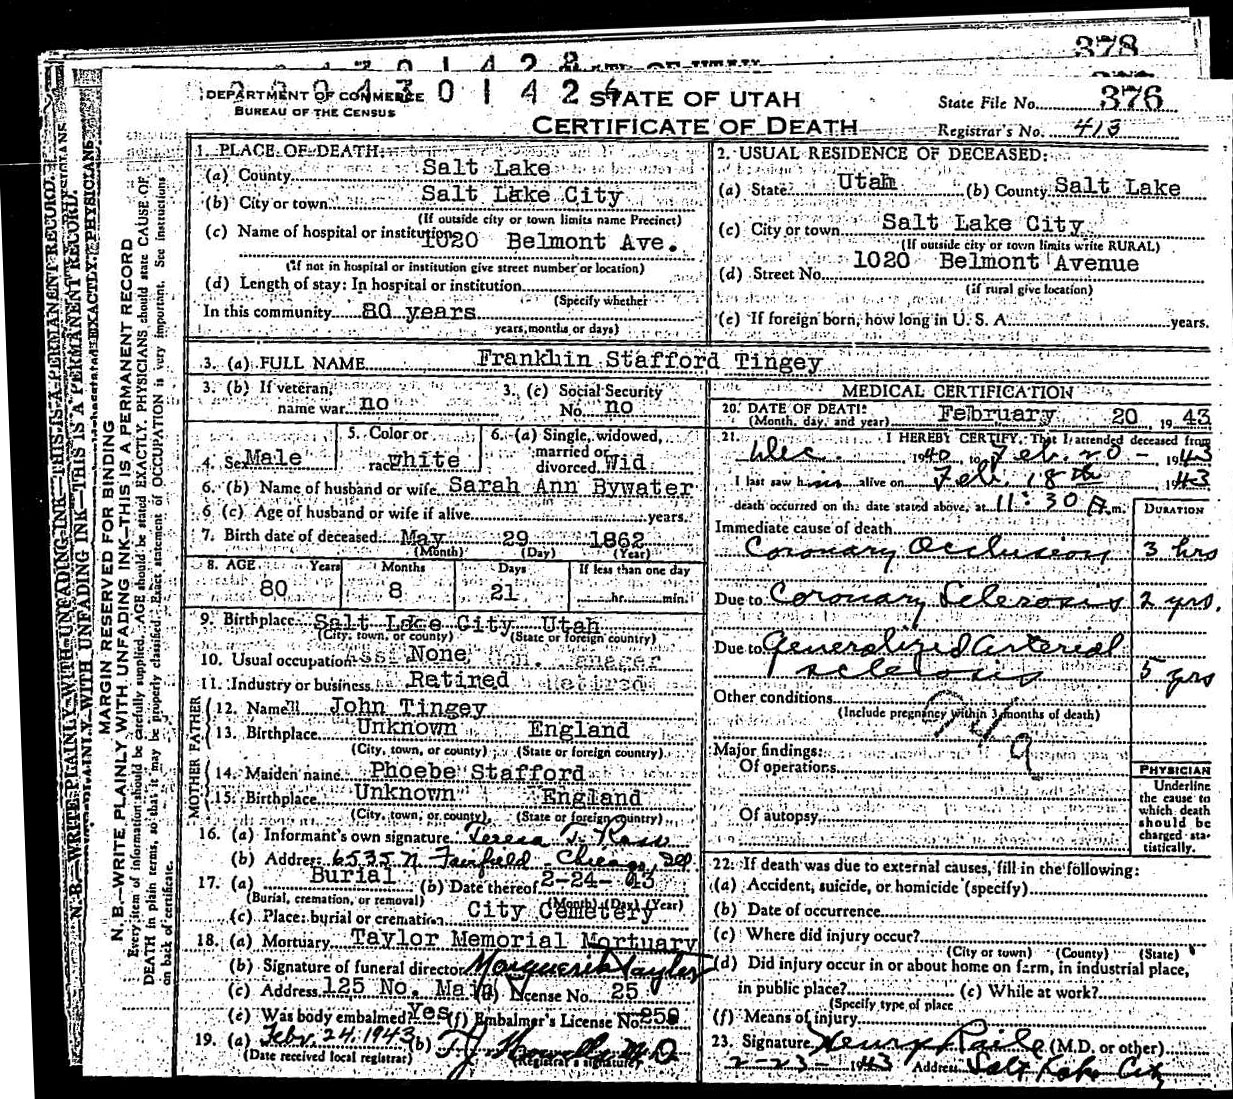 378
376
DEPARTMENT OF COMMERCE
BUREAU OF THE CENSUS
STATE OF UTAH
CERTIFICATE OF DEATH
State File No. 376
Registrar's No. 413
1. PLACE OF DEATH:
(a) County Salt Lake
(b) City or town Salt Lake City
(If outside city or town limits name Precinct)
(c) Name of hospital or institution 1020 Belmont Ave.
(If not in hospital or institution give street number or location)
(d) Length of stay: In hospital or institution
(Specify whether
In this community 80 years
years, months or days)
2. USUAL RESIDENCE OF DECEASED:
(a) State Utah (b) County Salt Lake
(c) City or town Salt Lake City
(If outside city or town limits write RURAL)
(d) Street No. 1020 Belmont Avenue
(if rural give location)
(e) If foreign born, how long in U. S. A. years.
3. (a) FULL NAME Franklin Stafford Tingey
3. (b) If veteran, name war no
3. (c) Social Security No. no
4. Sex Male
5. Color or race White
6. (a) Single, widowed, married or divorced Wid
6. (b) Name of husband or wife Sarah Ann Bywater
6 (c) Age of husband or wife if alive years.
7. Birth date of deceased May 29 1862
(Month) (Day) (Year)
8. AGE Years Months Days If less than one day
80 8 21 hr. min.
9. Birthplace Salt Lake City Utah
(City, town, or county) (State or foreign country)
10. Usual occupation None
11. Industry or business Retired
FATHER
12. Name John Tingey
13. Birthplace Unknown England
(City, town, or county) (State or foreign country)
MOTHER
14. Maiden name Phoebe Stafford
15. Birthplace Unknown England
(City, town, or county) (State or foreign country)
16. (a) Informant's own signature Teresa T. Ross
(b) Address 6535 N Fairfield Chicago, Ill
17. (a) Burial (b) Date thereof 2-24-43
(Burial, cremation, or removal) (Month) (Day) (Year)
(c) Place: burial or cremation City Cemetery
18. (a) Mortuary Taylor Memorial Mortuary
(b) Signature of funeral director Marguerite Taylor
(c) Address 125 No. Main (d) License No. 25
(e) Was body embalmed? Yes (f) Embalmer's License No. 250
19. (a) Febr. 24, 1943 (b) T J Howells M.D
(Date received local registrar) (Registrar's signature)
MEDICAL CERTIFICATION
20. DATE OF DEATH: February 20 1943
(Month, day, and year)
21. I HEREBY CERTIFY, That I attended deceased from
Dec. 1940, to Feb. 20 - 1943
I last saw him alive on Feb. 18th 1943
death occurred on the date stated above, at 11:30 A. m.
DURATION
Immediate cause of death
Coronary Occlusion 3 hrs
Due to Coronary Sclerosis 2 yrs.
Due to Generalized arterial
sclerosis 5 yrs
Other conditions
(Include pregnancy within 3 months of death)
Major findings:
Of operations
Of autopsy
PHYSICIAN
Underline
the cause to
which death
should be
charged sta-
tistically.
22. If death was due to external causes, fill in the following:
(a) Accident, suicide, or homicide (specify)
(b) Date of occurrence
(c) Where did injury occur?
(City or town) (County) (State)
(d) Did injury occur in or about home on farm, in industrial place,
in public place? (e) While at work?
(Specify type of place
(f) Means of injury
23. Signature Henry Raile (M.D. or other)
2-23- 1943 Address Salt Lake City
MARGIN RESERVED FOR BINDING
N. B.—WRITE PLAINLY WITH UNFADING INK—THIS IS A PERMANENT RECORD
Every item of information should be carefully supplied. AGE should be stated EXACTLY. PHYSICIANS should state CAUSE OF
DEATH in plain terms, so that it may be properly classified. Exact statement of OCCUPATION is very important. See instructions
on back of certificate.